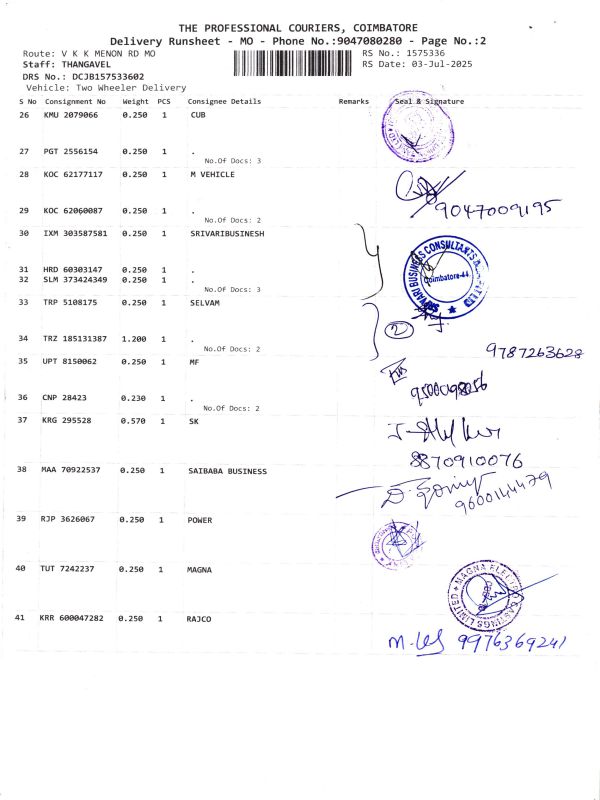 THE PROFESSIONAL COURIERS, COIMBATORE
Delivery Runsheet - MO - Phone No.:9047080280 - Page No.:2
Route: V K K MENON RD MO RS No.: 1575336
Staff: THANGAVEL RS Date: 03-Jul-2025
DRS No.: DCJB157533602
Vehicle: Two Wheeler Delivery
S No Consignment No Weight PCS Consignee Details Remarks Seal & Signature
26 KMU 2079066 0.250 1 CUB
27 PGT 2556154 0.250 1 .
No.Of Docs: 3
28 KOC 62177117 0.250 1 M VEHICLE
9047009195
29 KOC 62060087 0.250 1 .
No.Of Docs: 2
30 IXM 303587581 0.250 1 SRIVARIBUSINESH
31 HRD 60303147 0.250 1 .
32 SLM 373424349 0.250 1 .
No.Of Docs: 3
SRIVARI BUSINESS CONSULTANTS
Coimbatore-44
33 TRP 5108175 0.250 1 SELVAM
2
34 TRZ 185131387 1.200 1 .
No.Of Docs: 2
9787263628
35 UPT 8150062 0.250 1 MF
36 CNP 28423 0.230 1 .
No.Of Docs: 2
37 KRG 295528 0.570 1 SK
8870910076
38 MAA 70922537 0.250 1 SAIBABA BUSINESS
9600144479
39 RJP 3626067 0.250 1 POWER
40 TUT 7242237 0.250 1 MAGNA
MAGNA ELECTRO CASTINGS LIMITED
41 KRR 600047282 0.250 1 RAJCO
9976369241